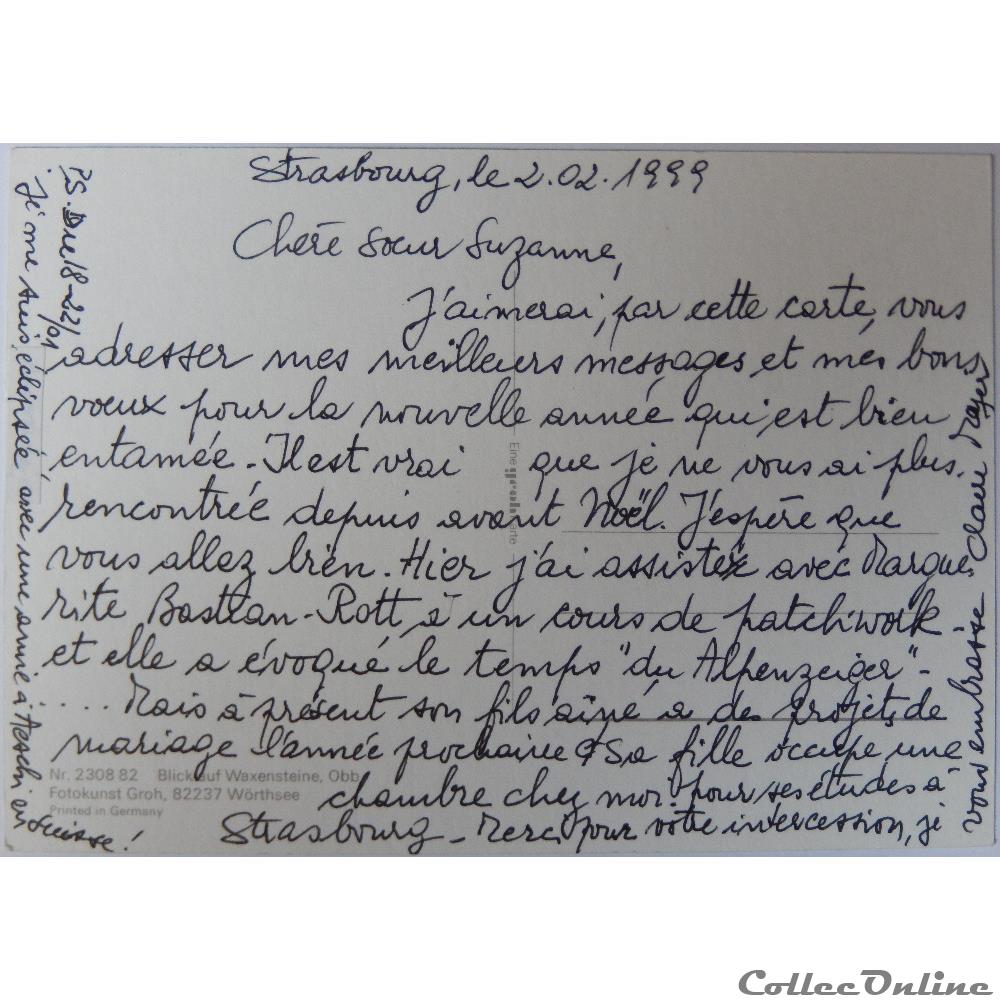 Strasbourg, le 2.02.1999
Chère Soeur Suzanne,
J'aimerai, par cette carte, vous
adresser mes meilleurs messages et mes bons
voeux pour la nouvelle année qui est bien
entamée - Il est vrai que je ne vous ai plus
rencontrée depuis avant Noël. J'espère que
vous allez bien. Hier j'ai assisté avec Margue-
rite Bastian-Rott à un cours de patchwork -
et elle a évoqué le temps "du Alpenzeiger" -
..... Mais à présent son fils aîné a des projets de
mariage l'année prochaine & Sa fille occupe une
chambre chez moi pour ses études à
Strasbourg - Merci pour votre intercession, je
vous embrasse Claire
PS. Du 18-22/01
Je me suis éclipsée avec une amie à Aeschi en Suisse!
Eine groh Karte
Nr. 2308 82 Blick auf Waxensteine, Obb.
Fotokunst Groh, 82237 Wörthsee
Printed in Germany
CollecOnline